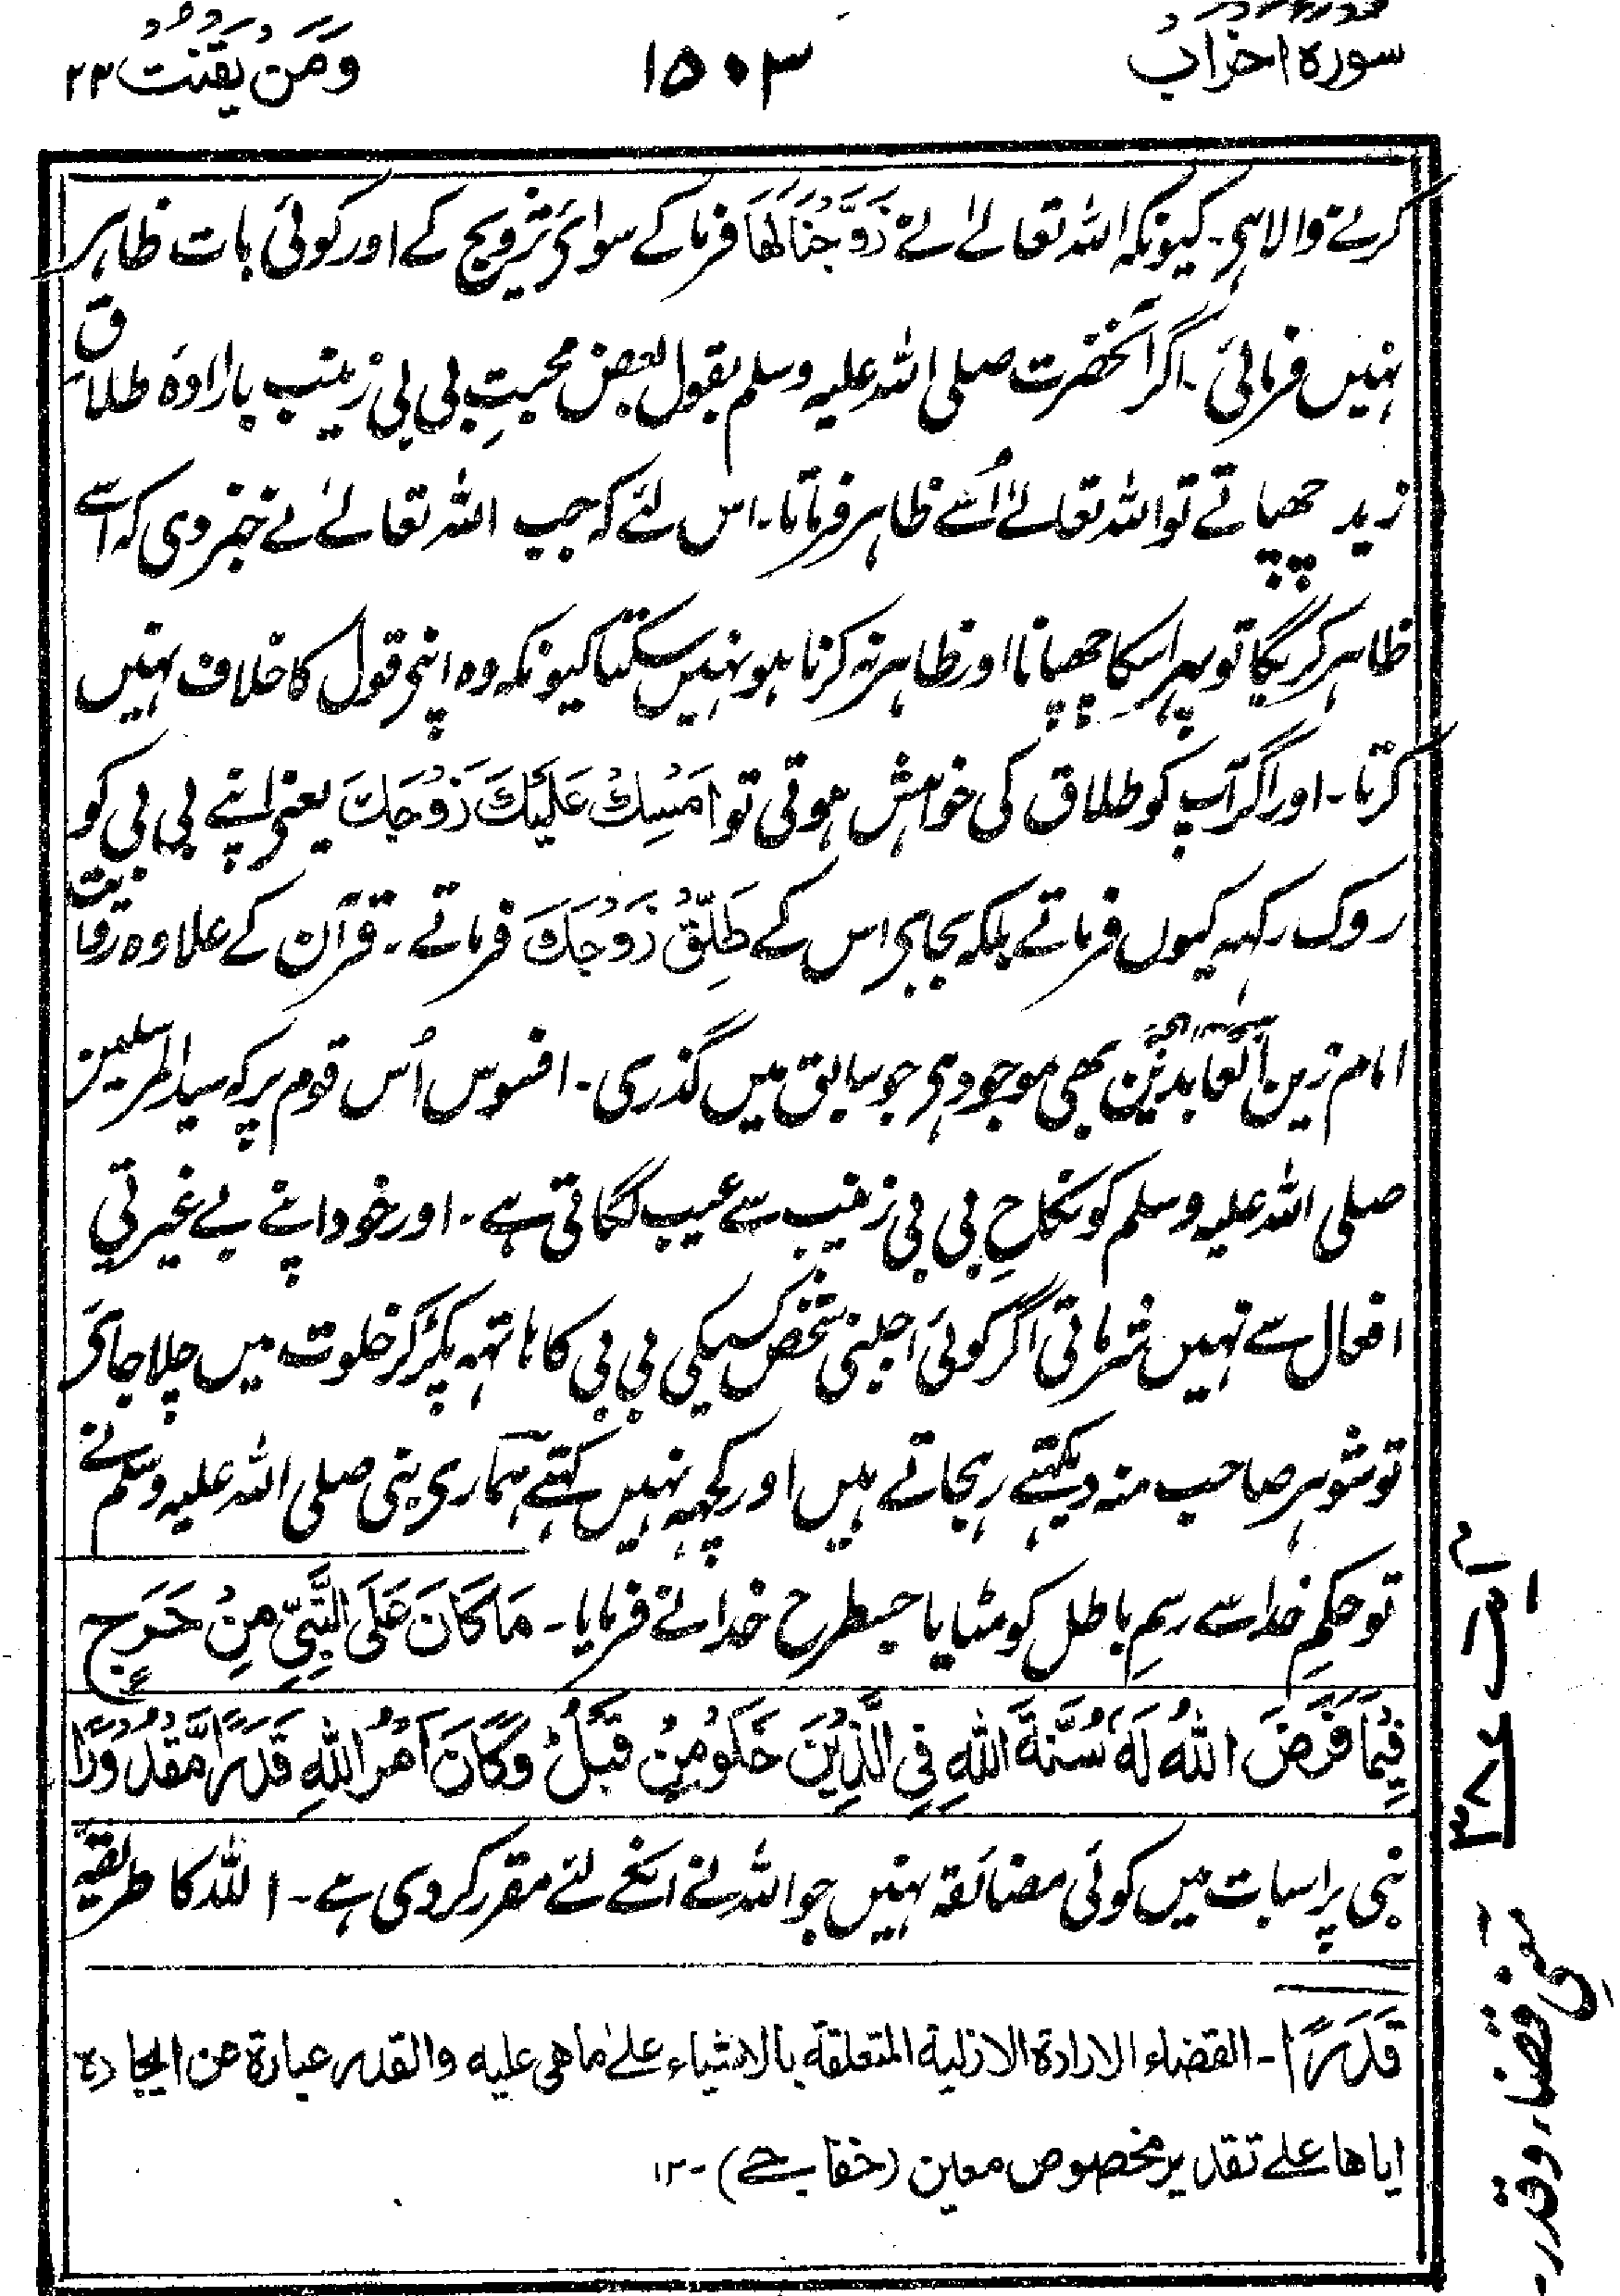 سورہ احزاب
۱۵۰۳
وَمَن یَّقْنُت ۲۲
کرنے والا ہی۔ کیونکہ اللہ تعالےٰ نے زَوَّجْنَاکَھَا فرما کے سوائ تزویج کے اور کوئی بات ظاہر
نہیں فرمائی۔ اگر آنحضرت صلی اللہ علیہ وسلم بقول بعض محبتِ بی بی زینب یا ارادۂ طلاق
زید چھپاتے تو اللہ تعالےٰ اُسے ظاہر فرماتا۔ اس لئے کہ جب اللہ تعالےٰ نے خبر دی کہ اسے
ظاہر کریگا تو پہر اسکا چھپانا اور ظاہر نہ کرنا ہو نہیں سکتا کیونکہ وہ اپنی قول کا خلاف نہیں
کرتا۔ اور اگر آپ کو طلاق کی خواہش ہوتی تو اَمْسِكْ عَلَیْكَ زَوْجَكَ یعنی اپنے بی بی کو
روک رکہہ کیوں فرماتے بلکہ بجای اس کے طَلِّقْ زَوْجَكَ فرماتے۔ قرآن کے علاوہ روایت
امام زین العابدین بھی موجود ہی جو سابق میں گذری۔ افسوس اُس قوم پر کہ سید المرسلین
صلی اللہ علیہ وسلم کو نکاحِ بی بی زینب سے عیب لگاتی ہے۔ اور خود اپنے بے غیرتی
افعال سے نہیں شرماتی اگر کوئی اجلنبی شخص کسیکی بی بی کا ہاتہہ پکڑ کر خلوت میں چلا جائ
تو شوہر صاحب منہ دیکہتے رہجاتے ہیں اور کچہہ نہیں کہتے ہماری نبی صلی اللہ علیہ وسلم نے
تو حکمِ خدا سے رسمِ باطل کو مٹایا جسطرح خدا نے فرمایا۔ مَا کَانَ عَلَی النَّبِیِّ مِنْ حَرَجٍ
فِیْمَا فَرَضَ اللهُ لَهٗ سُنَّةَ اللهِ فِی الَّذِیْنَ خَلَوْ مِنْ قَبْلُ وَکَانَ اَمْرُ اللهِ قَدَرًا مَّقْدُوْرًا
نبی پر اسبات میں کوئی مضائقہ نہیں جو اللہ نے انکے لئے مقرر کردی ہے۔ اللہ کا طریقہ
قَدَرًا۔ القضاء الارادة الازلیة المتعلقة بالاشیاء علےٰ ما هی علیه والقدر عبارة عن ایجاده
ایاها علے تقدیر مخصوص معین (خفاجے)۔ ۱۲
آیت ۳۸
معنی قضاء وقدر۔